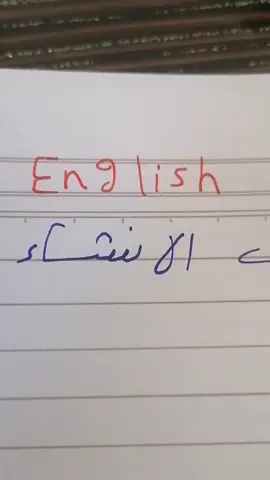 English
الانشاء